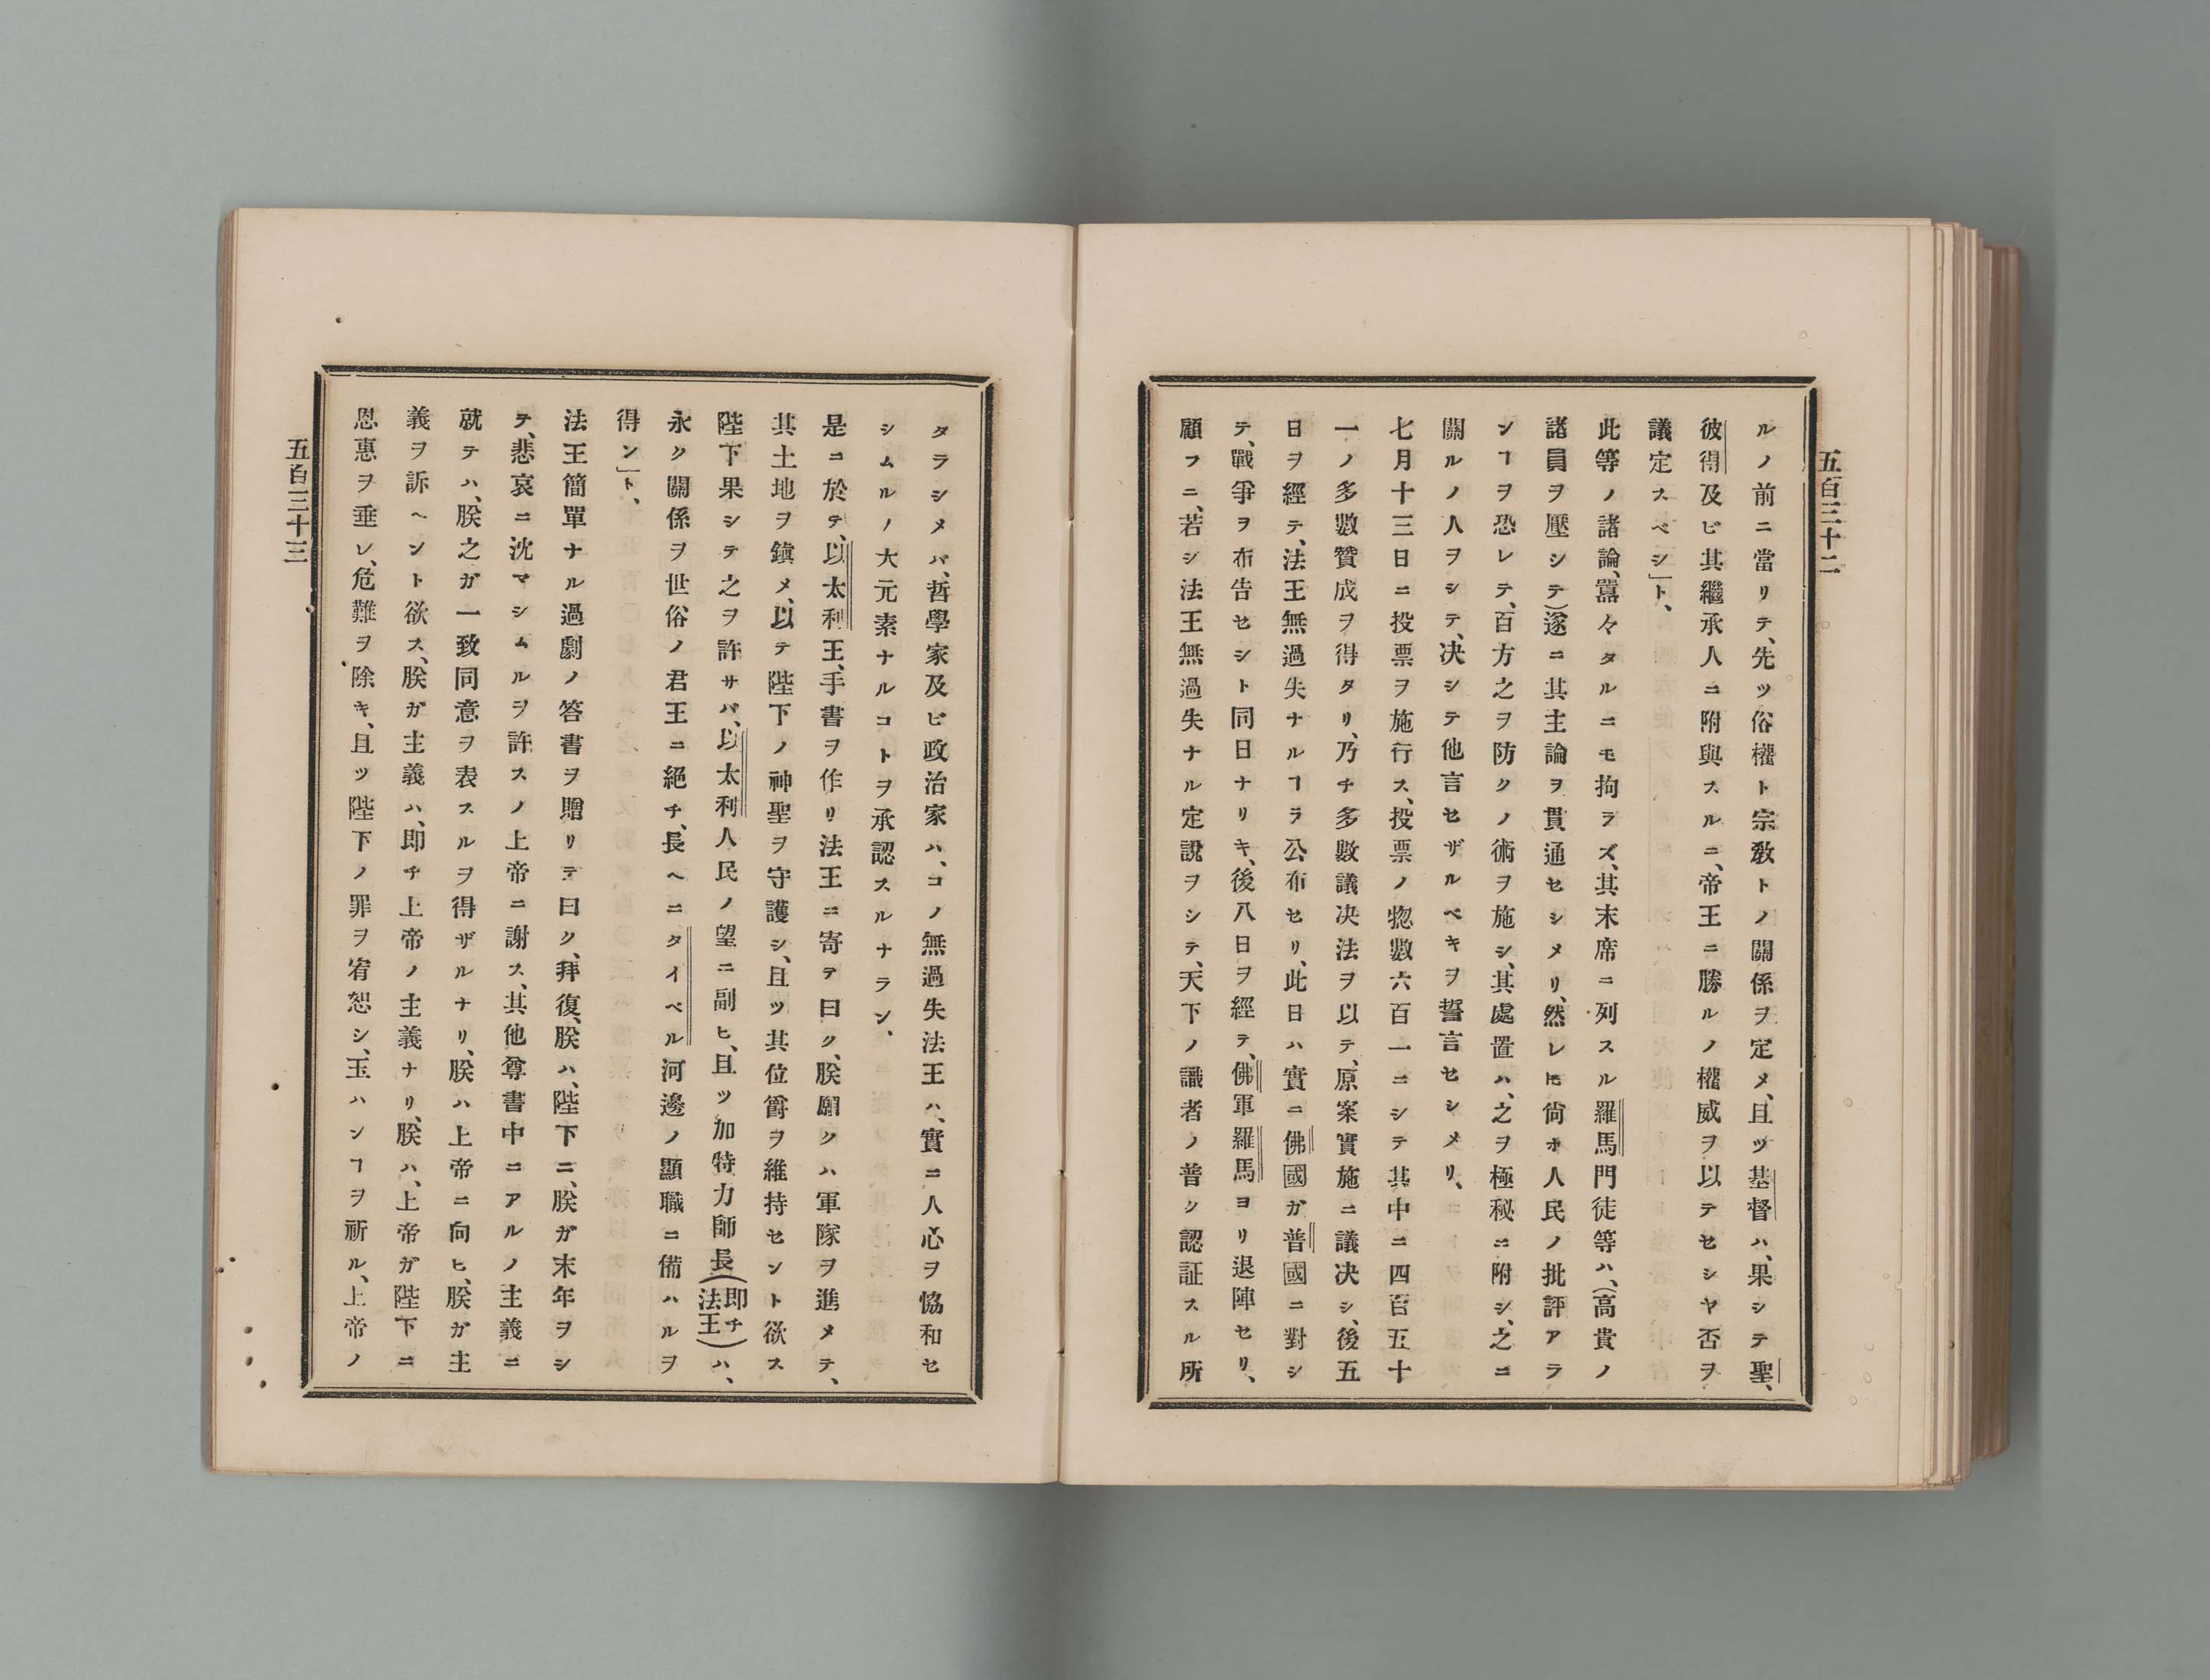 五百三十二
ルノ前ニ當リテ、先ツ俗權ト宗敎トノ關係ヲ定メ、且ツ基督ハ、果シテ聖、
彼得及ビ其繼承人ニ附與スルニ、帝王ニ勝ルノ權威ヲ以テセシヤ否ヲ
議定スベシ」ト、
此等ノ諸論、囂々タルニモ拘ラズ、其末席ニ列スル羅馬門徒等ハ、(高貴ノ
諸員ヲ壓シテ)遂ニ其主論ヲ貫通セシメリ、然レ𪜈尙ホ人民ノ批評アラ
ンヿヲ恐レテ、百方之ヲ防クノ術ヲ施シ、其處置ハ、之ヲ極秘ニ附シ、之ニ
關ルノ人ヲシテ、决シテ他言セザルベキヲ誓言セシメリ、
七月十三日ニ投票ヲ施行ス、投票ノ惣數六百一ニシテ其中ニ四百五十
一ノ多數贊成ヲ得タリ、乃チ多數議决法ヲ以テ、原案實施ニ議决シ、後五
日ヲ經テ、法王無過失ナルヿヲ公布セリ、此日ハ實ニ佛國ガ普國ニ對シ
テ、戰爭ヲ布告セシト同日ナリキ、後八日ヲ經テ、佛軍羅馬ヨリ退陣セリ、
顧フニ、若シ法王無過失ナル定說ヲシテ、天下ノ識者ノ普ク認証スル所
タラシメバ、哲學家及ビ政治家ハ、コノ無過失法王ハ、實ニ人心ヲ恊和セ
シムルノ大元素ナルコトヲ承認スルナラン、
是ニ於テ、以太利王、手書ヲ作リ法王ニ寄テ曰ク、朕願クハ軍隊ヲ進メテ、
其土地ヲ鎭メ、以テ陛下ノ神聖ヲ守護シ、且ツ其位爵ヲ維持セント欲ス
陛下果シテ之ヲ許サバ、以太利人民ノ望ニ副ヒ、且ツ加特力師長(即チ法王)ハ、
永ク關係ヲ世俗ノ君王ニ絕チ、長ヘニタイベル河邊ノ顯職ニ備ハルヲ
得ン」ト、
法王簡單ナル過劇ノ答書ヲ贈リテ曰ク、拜復、朕ハ、陛下ニ、朕ガ末年ヲシ
テ、悲哀ニ沈マシムルヲ許スノ上帝ニ謝ス、其他尊書中ニアルノ主義ニ
就テハ、朕之ガ一致同意ヲ表スルヲ得ザルナリ、朕ハ上帝ニ向ヒ、朕ガ主
義ヲ訴ヘント欲ス、朕ガ主義ハ、即チ上帝ノ主義ナリ、朕ハ、上帝ガ陛下ニ
恩惠ヲ垂レ、危難ヲ除キ、且ツ陛下ノ罪ヲ宥恕シ、玉ハンヿヲ祈ル、上帝ノ
五百三十三